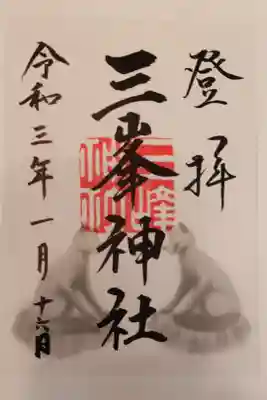 登拝
三峯神社
令和三年一月十六日